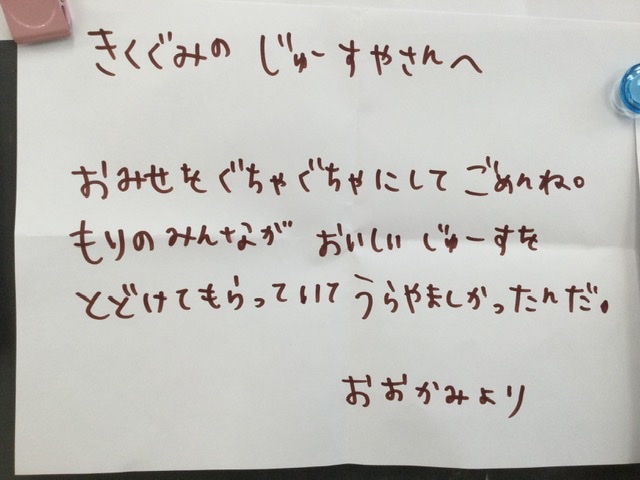 きくぐみの じゅーすやさんへ
おみせを ぐちゃぐちゃにして ごめんね。
もりの みんなが おいしい じゅーすを
とどけてもらっていて うらやましかったんだ。
おおかみより